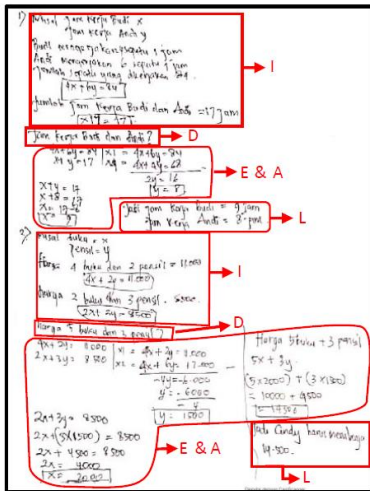 1) Misal jam kerja Budi x
jam kerja Andi y
Budi mengerjakan sepatu 1 jam
Andi mengerjakan 6 sepatu 1 jam
Jumlah sepatu yang dikerjakan 84
4x + 6y = 84
Jumlah jam kerja Budi dan Andi = 17 jam
I
Jam kerja Budi dan Andi?
D
4x + 6y = 84 | x1 = 4x + 6y = 84
x + y = 17 | x4 = 4x + 4y = 68
2y = 16
y = 8
x + y = 17
x + 8 = 17
E & A
Jadi jam kerja budi = 9 jam
jam kerja Andi = 8 jam
L
2) Misal buku = x
pensil = y
Harga 4 buku dan 2 pensil = 11.000
4x + 2y = 11.000
Harga 2 buku dan 3 pensil = 8500
2x + 3y = 8500
I
Harga 5 buku dan 3 pensil?
D
4x + 2y = 11000 | x1 = 4x + 2y = 11.000
2x + 3y = 8500 | x2 = 4x + 6y = 17.000
-4y = -6.000
y = -6000
-4
y = 1500
2x + 3y = 8500
2x + (3x1500) = 8500
2x + 4500 = 8500
2x = 4000
x = 2000
E & A
Harga 5 buku + 3 pensil
5x + 3y
(5x2000) + (3x1500)
= 10000 + 4500
= 14500
Jadi Cindy harus membayar
14.500
L